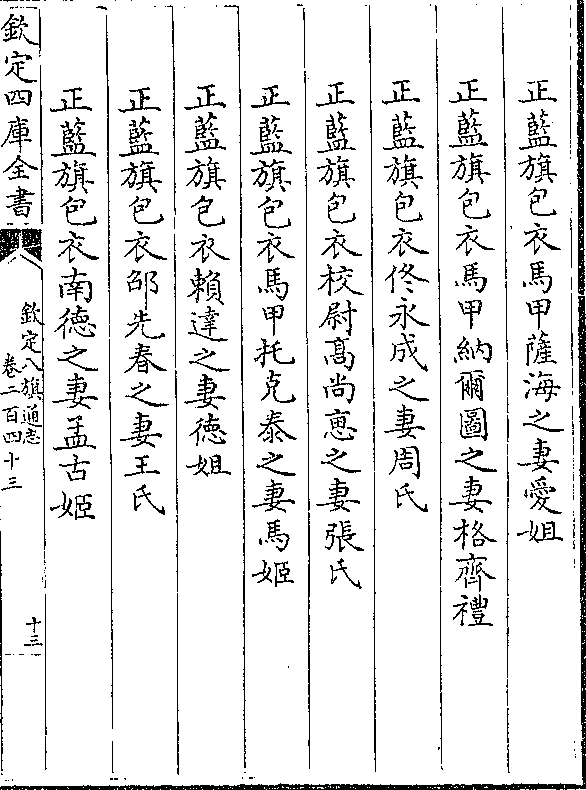 正藍旗包衣馬甲薩海之妻愛姐
正藍旗包衣馬甲納爾圖之妻格齊禮
正藍旗包衣佟永成之妻周氏
正藍旗包衣校尉高尚恵之妻張氏
正藍旗包衣馬甲托克泰之妻馬姬
正藍旗包衣賴達之妻徳姐
正藍旗包衣邵先春之妻王氏
正藍旗包衣南徳之妻孟古姬
欽定四庫全書
欽定八旗通志
卷二百四十三
十三